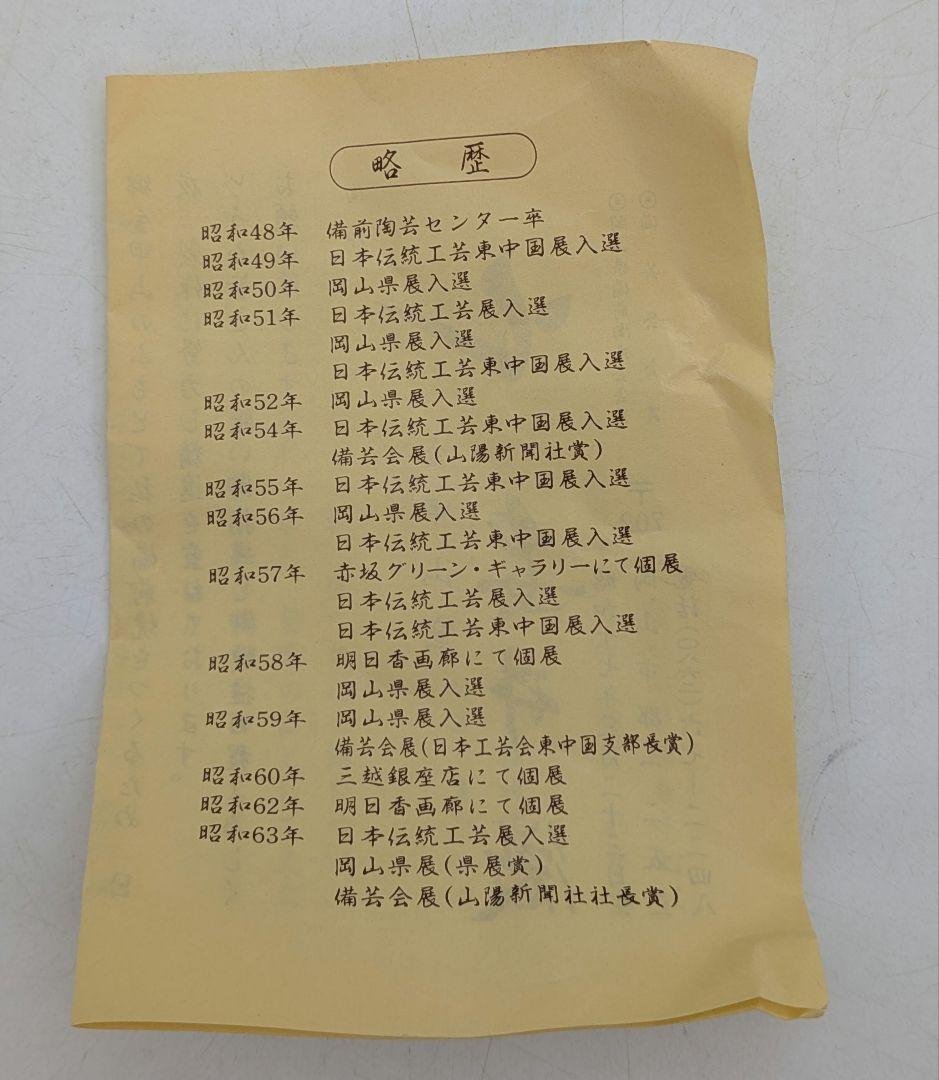 略歴
昭和48年 備前陶芸センター卒
昭和49年 日本伝統工芸東中国展入選
昭和50年 岡山県展入選
昭和51年 日本伝統工芸展入選
岡山県展入選
日本伝統工芸東中国展入選
昭和52年 岡山県展入選
昭和54年 日本伝統工芸東中国展入選
備芸会展(山陽新聞社賞)
昭和55年 日本伝統工芸東中国展入選
昭和56年 岡山県展入選
日本伝統工芸東中国展入選
昭和57年 赤坂グリーン・ギャラリーにて個展
日本伝統工芸展入選
日本伝統工芸東中国展入選
昭和58年 明日香画廊にて個展
岡山県展入選
昭和59年 岡山県展入選
備芸会展(日本工芸会東中国支部長賞)
昭和60年 三越銀座店にて個展
昭和62年 明日香画廊にて個展
昭和63年 日本伝統工芸展入選
岡山県展(県展賞)
備芸会展(山陽新聞社社長賞)